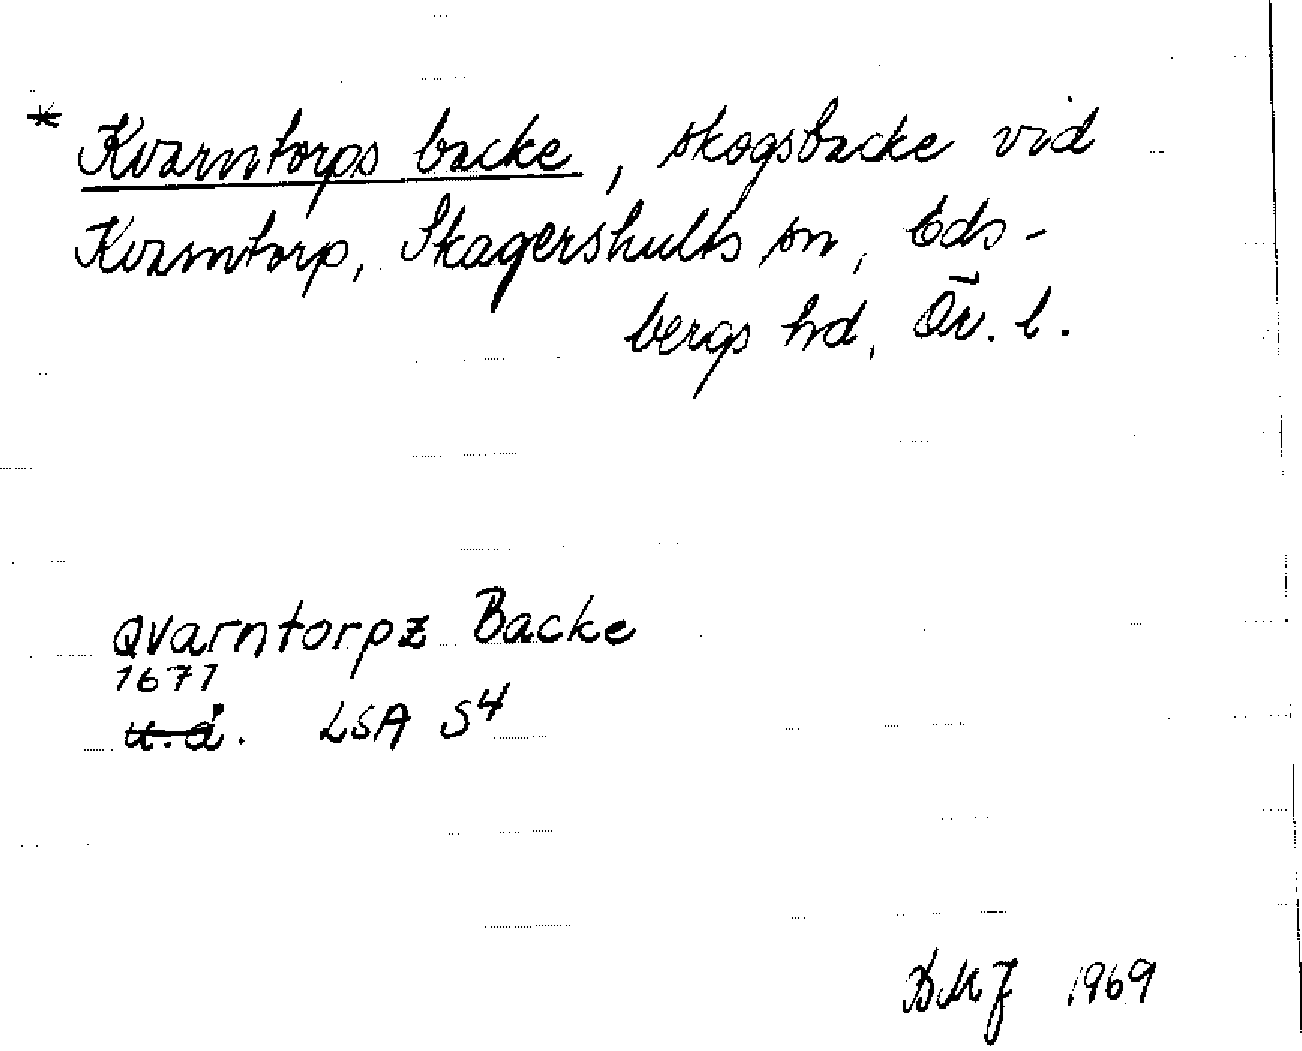 * Kvarntorps backe, skogsbacke vid
Kvarntorp, Skagershults sn, Eds-
bergs hd, Ör. l.
Qvarntorpz Backe
1677
u. å. LSA S4
DMJ 1969